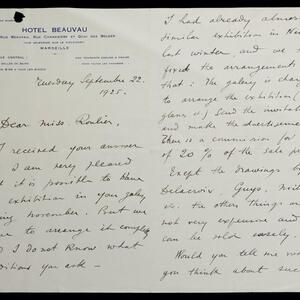 HOTEL BEAUVAU
RUE BEAUVAU, RUE CANNEBIÈRE ET QUAI DES BELGES
MARSEILLE
Tuesday September 22.
1925.
Dear Miss. Roullier.
I received your answer
I am very pleased
it is possible to have
exhibition in your galery
november. But we
to arrange it completely
I do not know what
ditions you ask —
I had already almost
similar exhibition in New
last winter, and we
fixed the arrangements
that: The galery is charged
to arrange the exhibition,
glass if) Send the invitat
and make the advertisement
There is a commission for
of 20 % of the sale
Except the drawings by
Delacroix, Guys,
etc. the other things are
not very expensive and
can be sold easily.
Would you tell me
you think about such